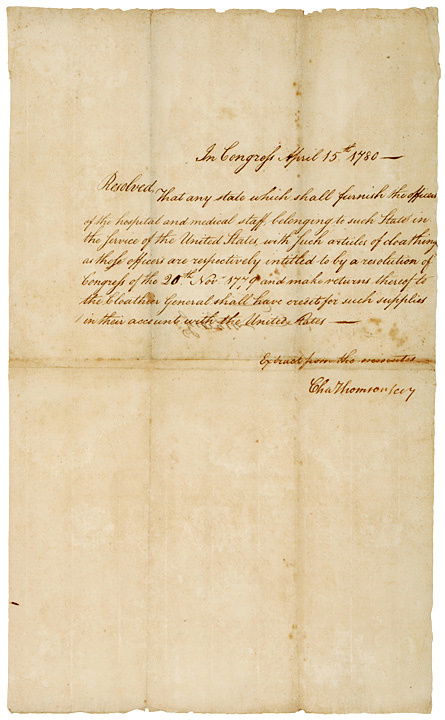 In Congress April 15th 1780 —
Resolved, That any state which shall furnish the officers
of the hospital and medical staff belonging to such State in
the Service of the United States, with such articles of cloathing
as those officers are respectively intitled to by a resolution of
Congress of the 20th Novr 1779 and make returns thereof to
the Cloathier General shall have credit for such supplies
in their accounts with the United States —
Extract from the minutes
Cha Thomson secy